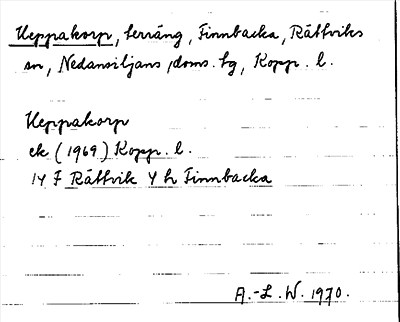 Keppakorp, terräng, Finnbacka, Rättviks
sn, Nedansiljans doms. tg, Kopp. l.
Keppakorp
ek (1969) Kopp. l.
14 F Rättvik 4 h Finnbacka
A.-L. W. 1970.